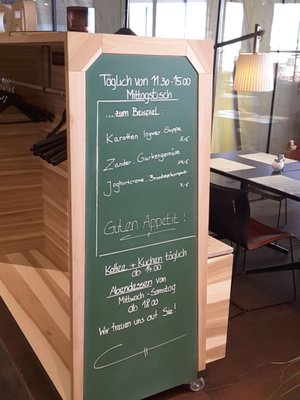 Täglich von 11.30-15.00
Mittagstisch
...zum Beispiel:
Karotten Ingwer Suppe
5,-€
Zander, Gurkengemüse
Joghurtcreme, Brombeerkompott
Guten Appetit!
Kaffee + Kuchen täglich
ab 14.00
Abendessen von
Mittwoch - Samstag
ab 18.00
Wir freuen uns auf Sie!